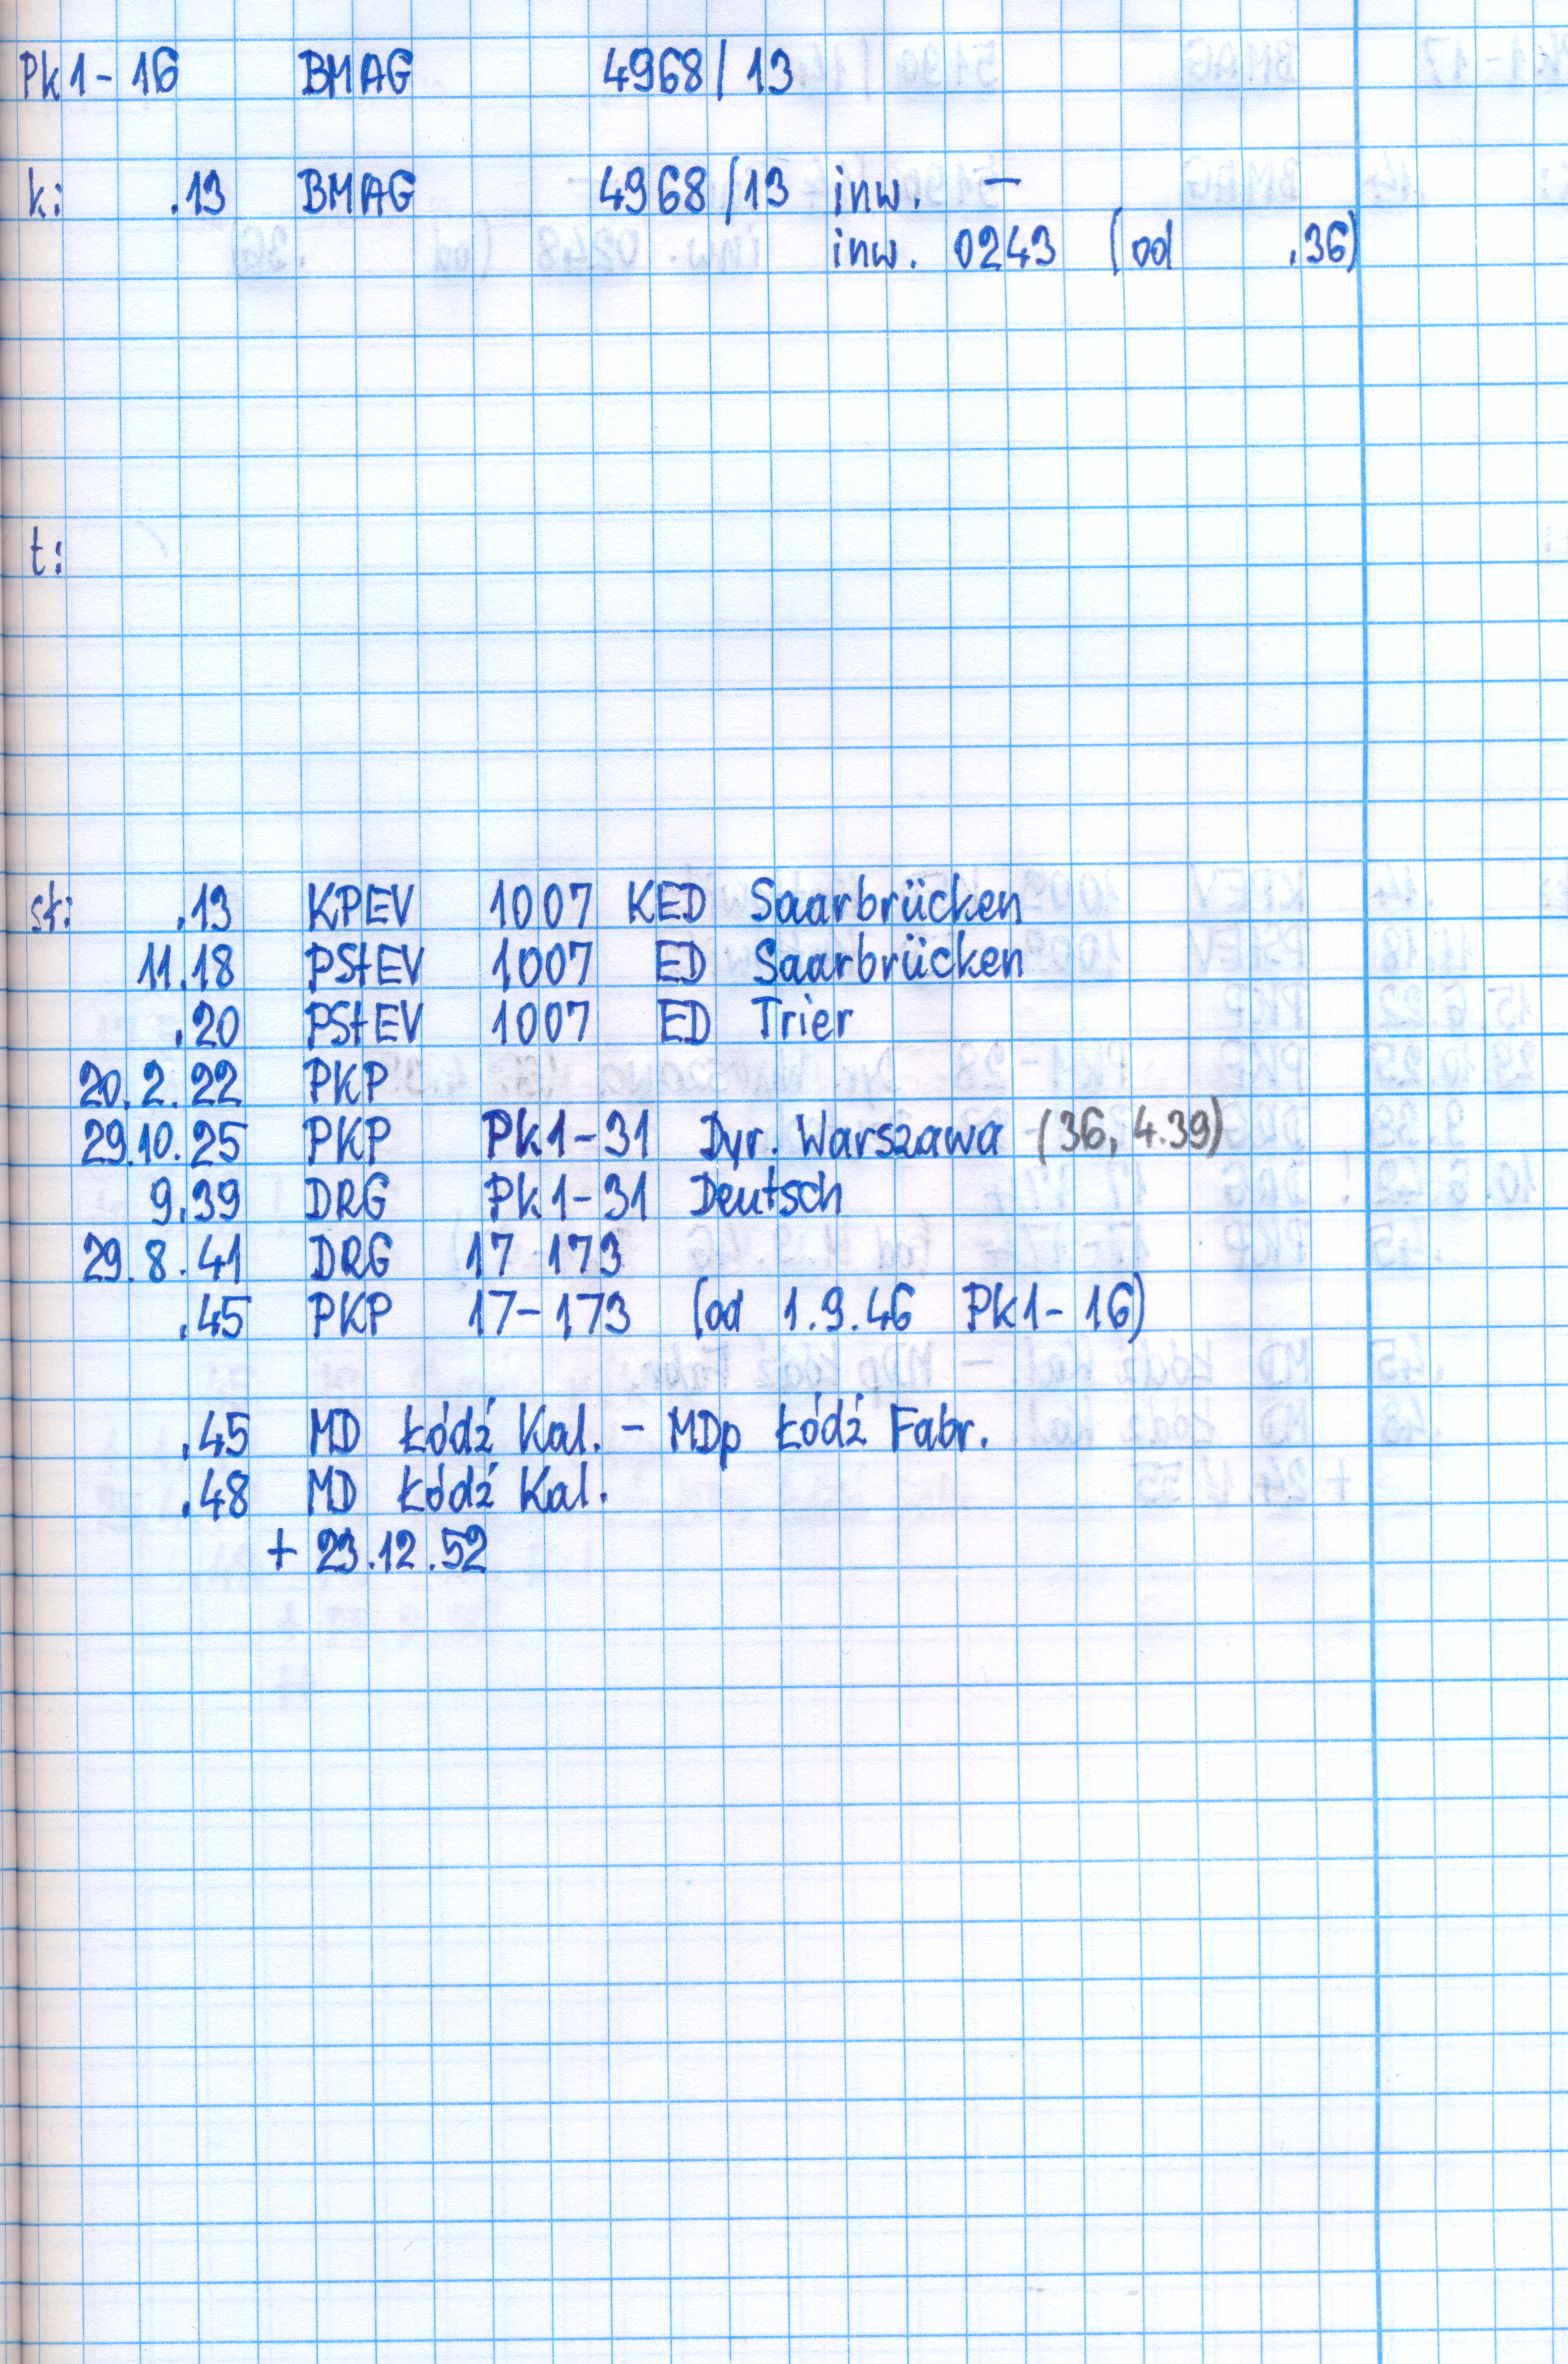 Pk1-16 BMAG 4968/13
k: .13 BMAG 4968/13 inw. –
inw. 0243 (od .36)
t:
st: .13 KPEV 1007 KED Saarbrücken
11.18 PStEV 1007 ED Saarbrücken
.20 PStEV 1007 ED Trier
20.2.22 PKP
29.10.25 PKP Pk1-31 Dyr. Warszawa (36, 4.39)
9.39 DRG Pk1-31 Deutsch
29.8.41 DRG 17 173
.45 PKP 17-173 (od 1.9.46 Pk1-16)
.45 MD Łódź Kal. – MDp Łódź Fabr.
.48 MD Łódź Kal.
+ 23.12.52